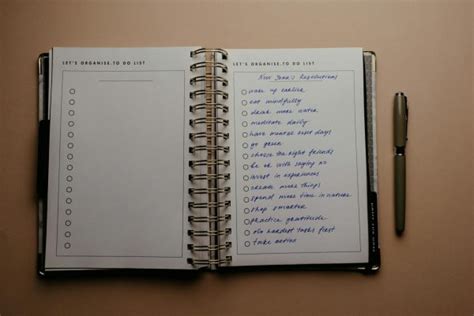 LET'S ORGANISE, TO DO LIST
LET'S ORGANISE, TO DO LIST
New Year's Resolutions
wake up earlier
eat mindfully
drink more water
meditate daily
have mental rest days
go green
choose the right friends
be ok with saying no
invest in experiences
create more things
spend more time in nature
shop smarter
practice gratitude
do hardest tasks first
take action